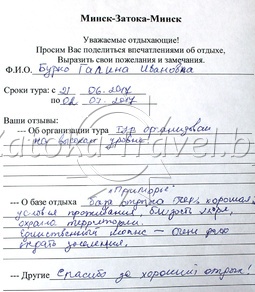 Минск-Затока-Минск
Уважаемые отдыхающие!
Просим Вас поделиться впечатлениями об отдыхе,
Выразить свои пожелания и замечания.
Ф.И.О. Бурко Галина Ивановна
Сроки тура: с 21 06.2017
по 02 07.2017
Ваши отзывы:
--- Об организации тура Тур организован
на высоком уровне
"Приморье"
--- О базе отдыха база отдыха очень хорошая,
условия проживания, близость моря,
охрана территории.
Единственный минус —
--- Другие Спасибо за хороший отдых!
Zatoka-Travel.b